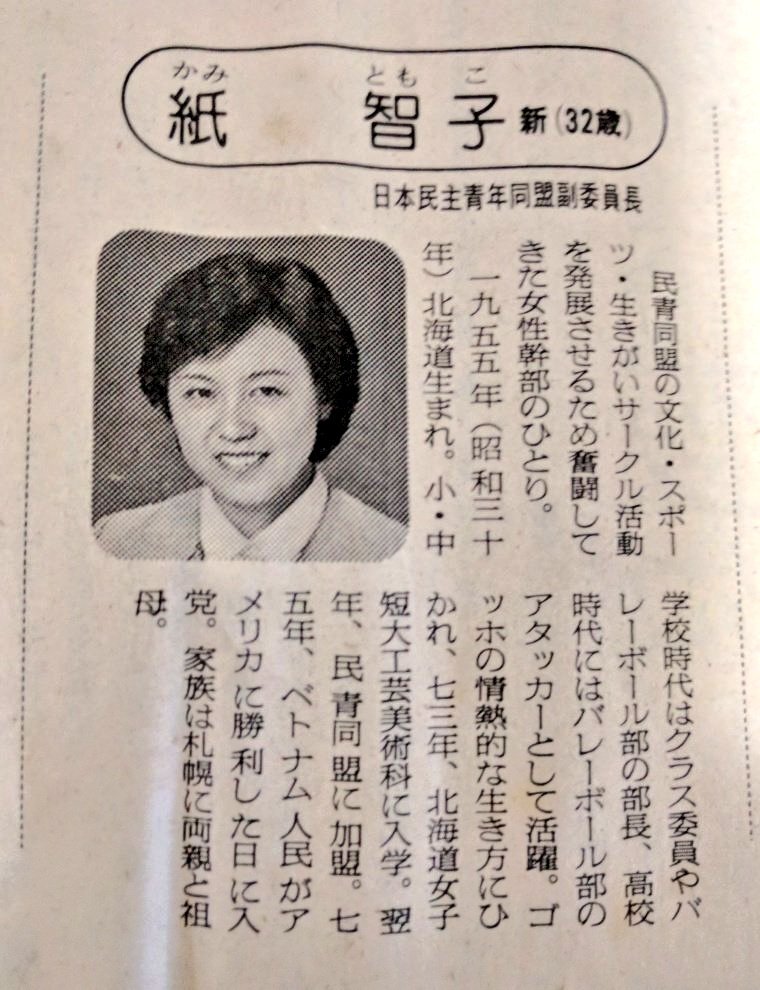 かみ ともこ
紙 智子 新(32歳)
日本民主青年同盟副委員長
民青同盟の文化・スポー
ツ・生きがいサークル活動
を発展させるため奮闘して
きた女性幹部のひとり。
一九五五年(昭和三十
年)北海道生まれ。小・中
学校時代はクラス委員やバ
レーボール部の部長、高校
時代にはバレーボール部の
アタッカーとして活躍。ゴ
ッホの情熱的な生き方にひ
かれ、七三年、北海道女子
短大工芸美術科に入学。翌
年、民青同盟に加盟。七
五年、ベトナム人民がア
メリカに勝利した日に入
党。家族は札幌に両親と祖
母。